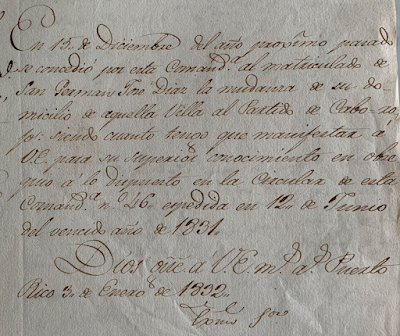 En 15,, de Diciembre del año proximo pasado
se concedió por esta Comand.ª al matriculado de
San German José Diaz la mudanza de su do-
micilio de aquella Villa al Partido de Caborro-
jo: siendo cuanto tengo que manifestar a
VE. para su superior conocimiento en obse-
quio á lo dispuesto en la Circular de esta
Comand.ª n.º 46,, espedida en 12,, de Junio
del vencido año de 1831.
Dios gue. a VE. m.s a.s Puerto
Rico 3,, de Enero de 1832,,
Exmo Sor